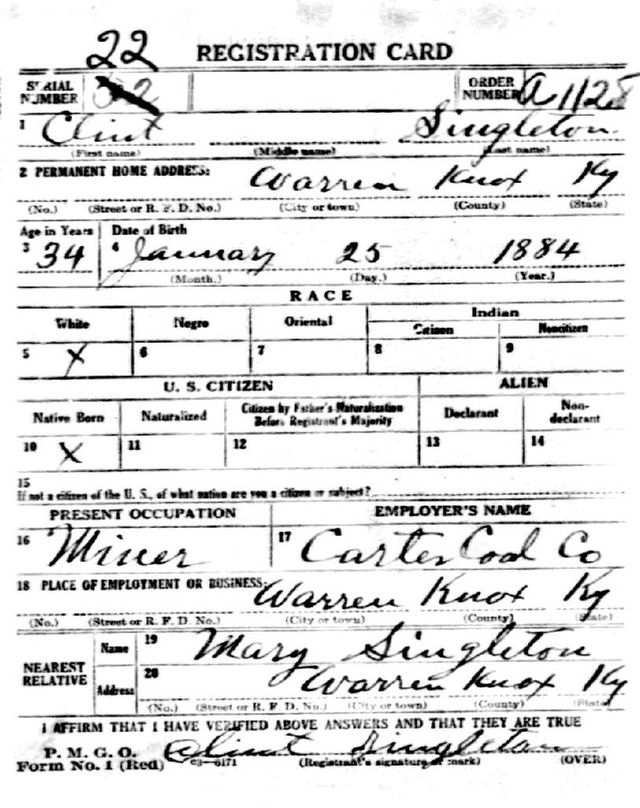 22
REGISTRATION CARD
SERIAL NUMBER ORDER NUMBER A 1128
1 Clint Singleton
(First name) (Middle name) (Last name)
2 PERMANENT HOME ADDRESS: Warren Knox Ky
(No.) (Street or R. F. D. No.) (City or town) (County) (State)
Age in Years Date of Birth
3 34 4 January 25 1884
(Month.) (Day.) (Year.)
RACE
White Negro Oriental Indian
Citizen Noncitizen
5 X 6 7 8 9
U. S. CITIZEN ALIEN
Native Born Naturalized Citizen by Father's Naturalization Before Registrant's Majority Declarant Non-declarant
10 X 11 12 13 14
15
If not a citizen of the U. S., of what nation are you a citizen or subject?
PRESENT OCCUPATION EMPLOYER'S NAME
16 Miner 17 Carter Coal Co
18 PLACE OF EMPLOYMENT OR BUSINESS: Warren Knox Ky
(No.) (Street or R. F. D. No.) (City or town) (County) (State)
NEAREST RELATIVE Name 19 Mary Singleton
Address 20 Warren Knox Ky
(No.) (Street or R. F. D. No.) (City or town) (County) (State)
I AFFIRM THAT I HAVE VERIFIED ABOVE ANSWERS AND THAT THEY ARE TRUE
P. M. G. O. Clint Singleton
Form No. 1 (Red) 03—6171 (Registrant's signature or mark) (OVER)